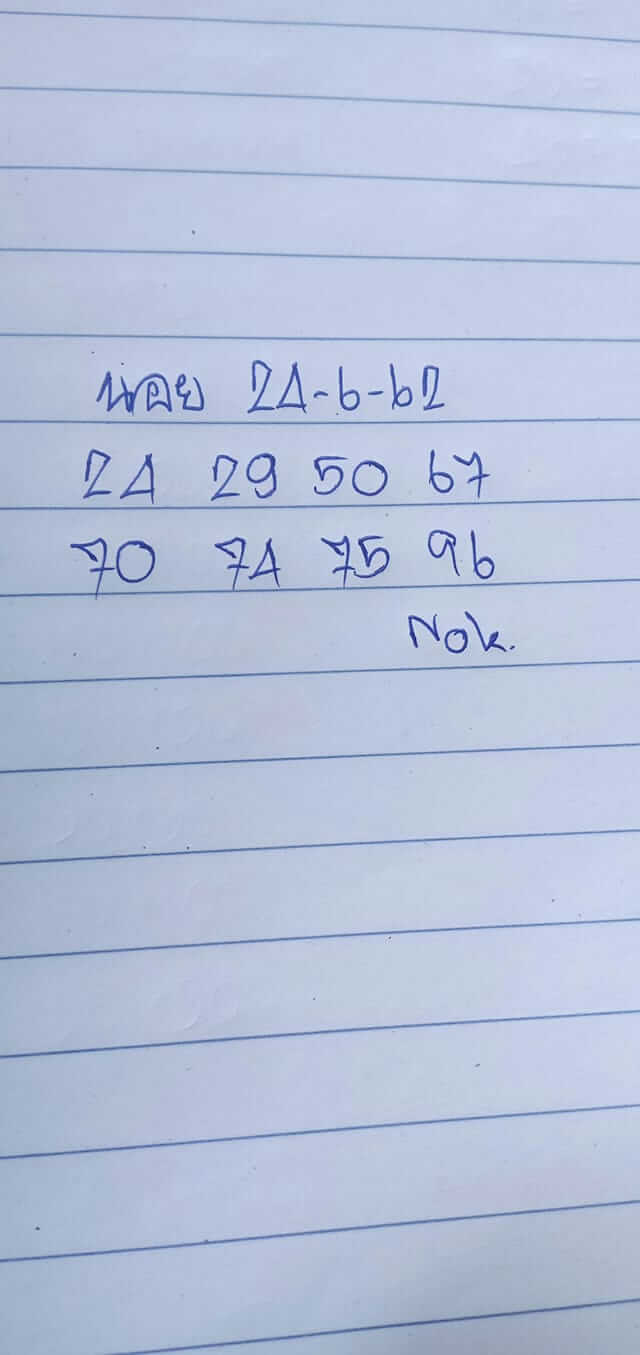 นอย 24-6-62
24 29 50 67
70 74 75 96
Nok.